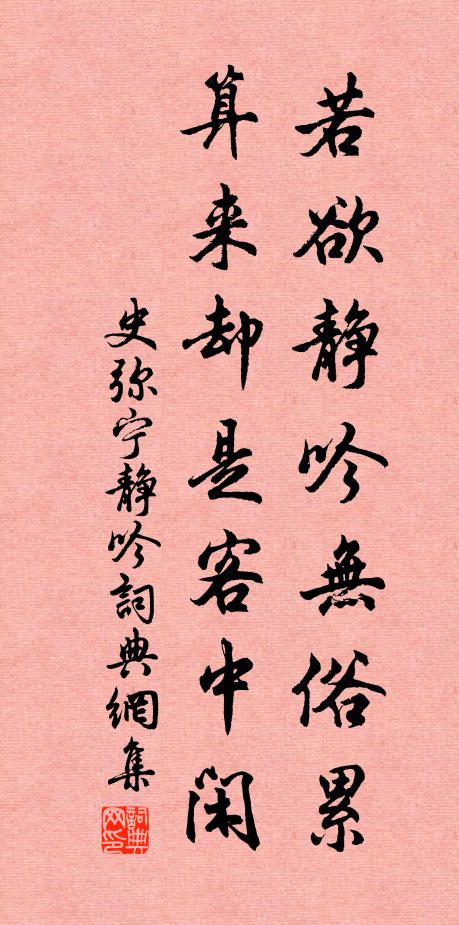 若欲静吟無俗累
算来却是客中闲
史弥宁静吟詞典網集
詞典网印